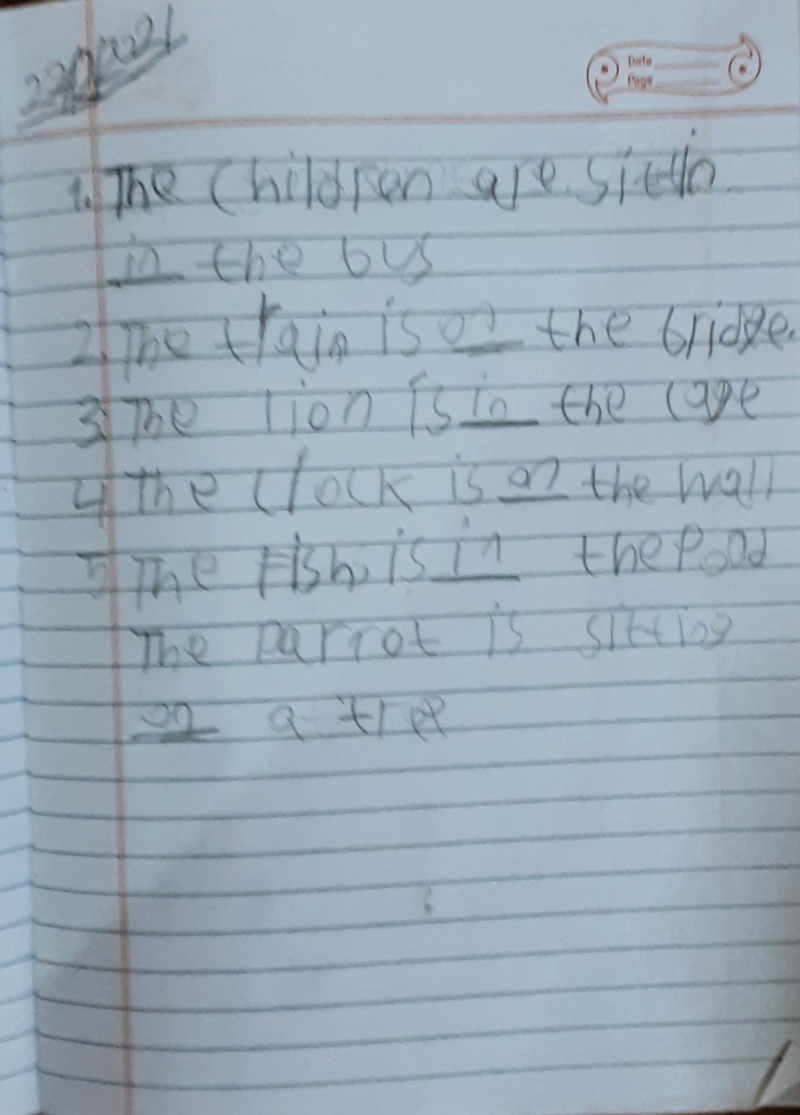 Date
Page
1. The Children are sittin
in the bus
2. The train is on the bridge.
3. The lion is in the cage
4 The Clock is on the wall
5 The Fish is in the Pond
The Parrot is sitting
on a tree